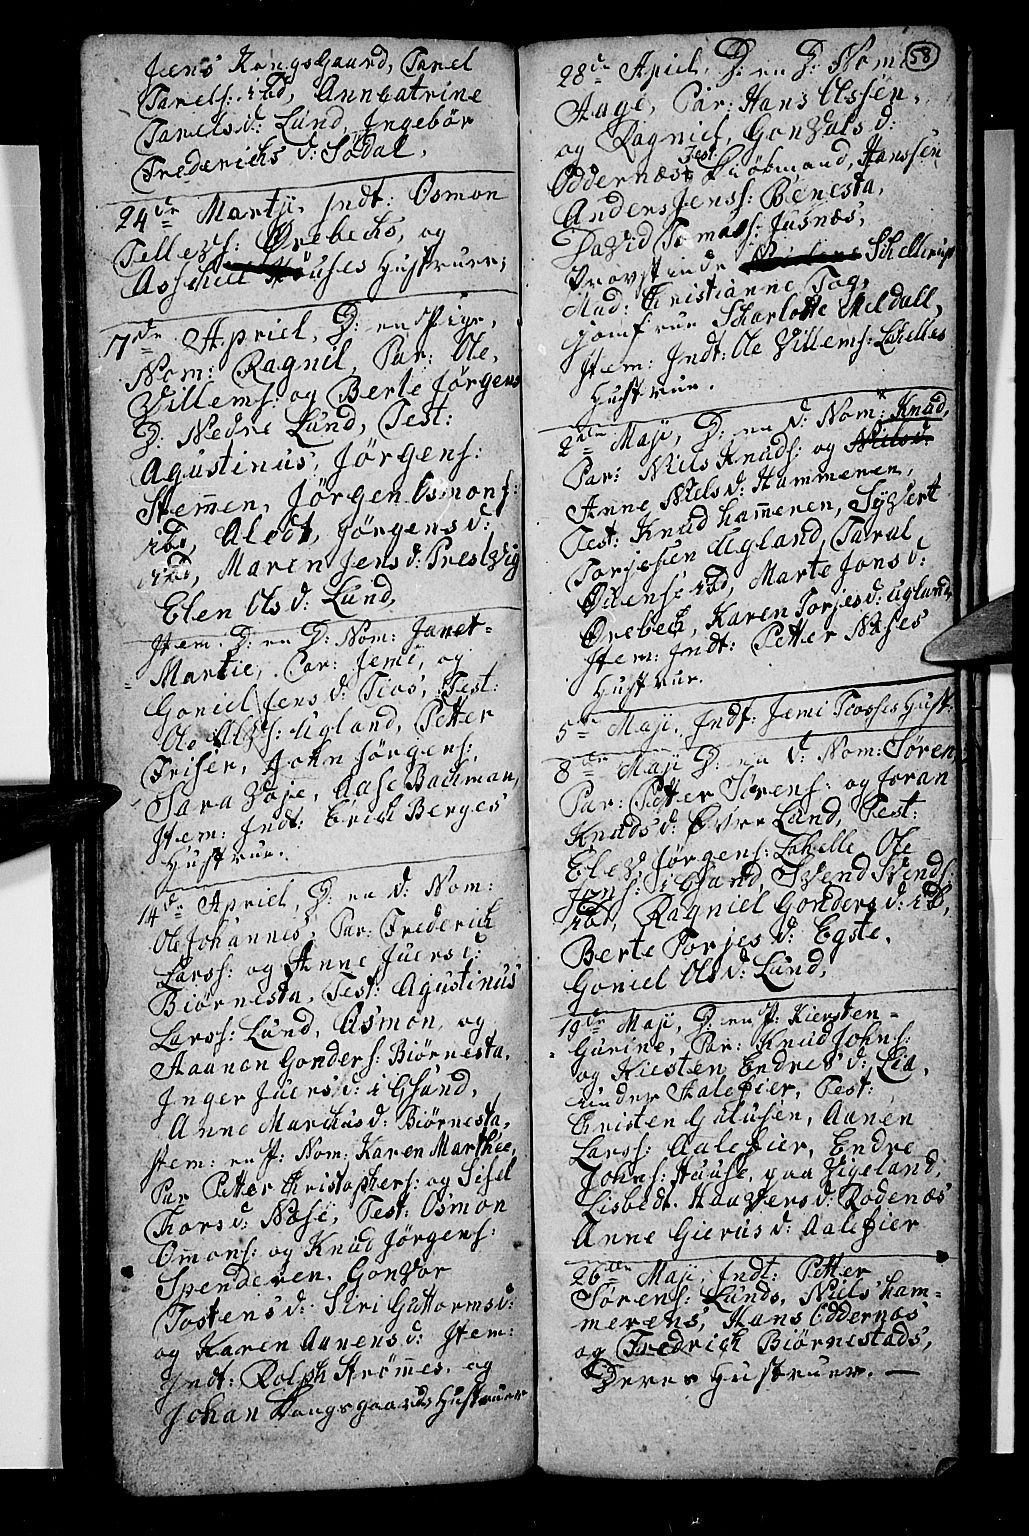 Jens KongsGaard, Tarel
Tarels: ibd, Anncatrine
Tarelsd: Lund, Ingebör
Frederichs d: Södal,
24de Martji, Jndt: Osmon
Tellevs: Örebecks, og
Asschell Huuses Hustruer;
7de Apriel, D: en Pige,
Nom: Ragnil, Par: Ole,
Villems: og Berte Jörgens
D: Nedre Lund, Test:
Agustinus, Jörgens:
Stemen, Jörgen Osmons:
ibd, Aledt, Jörgens d:
ibd, Maren Jens d: Prestvig
Elen Ols d: Lund,
Jtem. D: en D: Nom: Janet-
Martie, Par: Jemi, og
Goniel Jens d: Tios, Test:
Ole Alfs: Ugland, Petter
Friser, John Jörgens:
Sara Voje, Aase Bachman,
Jtem: Jndt: Erich Berges
Hustrue.
14de Apriel, D: en d: Nom:
Ole Johannes, Par: Frederich
Larss: og Anne Juers d:
Biörnesta, Test: Agustinus
Larss: Lund, Asmon, og
Aaanen Gonders: Biörnesta,
Inger Juers d: i Gsund,
Anne Marckus d: Biörnesta,
Jtem: en P: Nom: Karen Marthie,
Par Petter Christophers: og Sisel
Thorsd: Næse, Test: Osmon
Omons: og Knud Jörgens:
Spenderen. Gonvor
Tostens d: Siri Guttorms d:
og Karen Aanens d: Jtem:
Jndt: Rolph Strömmes. og
Johan Kongsgaards Hustruer
58
28de Apriel, D: en D: Nom:
Aage, Par: Hans Ossen,
og Ragniel, Gonvals d:
Test:
Oddernæs, Kiöbmand, Hanssen
Anders Jenss: Benesta,
David Tomass: Jusnæs,
Provstinde Schellerup
Mad: Christianne Fog,
Jomfrue Scharlotte Meldall,
Jtem: Jndt: Ole Villems: Lahelles
Hustrue.
2den Maji, D: en d: Nom: Knud,
Par: Niels Knuds: og Nielsd:
Anne Niels d: Hammeren,
Test: Knud hameren, Syvert
Torjesen Ugland, Taral
Ouense ibd, Marte Jons d:
Örebech, Karen Torjes d: Ugland,
Jtem: Jndt: Petter Næses
Hustrue.
5te Maji, Jndt: Jemi Tiosses Hust:
8de Maji D: en d: Nom: Sören
Par: Petter Sörens: og Joran
Knuds d: Övre Lund, Test:
Elev Jörgens: Lahelle Ole
Jens: i Gsund Svend Svends:
ibd, Ragniel Gonders d: ibd,
Berte Torjes d: Egste,
Goniel Ols d: Lund,
19de Maji, D: en P: Kiersten-
Gurine, Par: Knud Johns:
og Kiesten Endres d: Lia,
under Aalefier, Test:
Cristen Gulusen, Aanen
Larss: Aalefier, Endre
Johns: Huuse, paa Vigeland,
Lisbedt. Haavers d: Rödenæs
Anne Gierus d: Aalefier
26de Maji, Jndt: Petter
Sörens: Lunds, Niels ham-
merens, Hans Oddernæs
og Fredrich Biörnestads,
Deres Hustruer. —